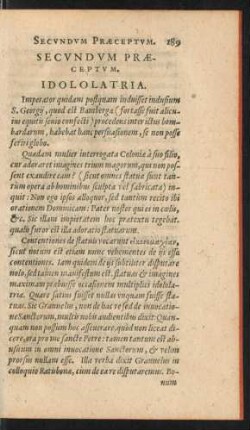 SECVNDVM PRÆCEPTVM. 189
SECVNDVM PRÆ-
CEPTVM.
IDOLOLATRIA.
Imperator quidam postquam induisset indusium
S. Georgij, quod est Bambergæ (fortasse
equitis confecti) procedens inter ictus bom-
bardarum, habebat hanc persuasionem, se non posse
feriri globo.
Quædam mulier interrogata Coloniæ à suo filio,
cur adoraret imagines trium magorum, quæ non pos-
sent exaudire eam? (sicut omnes statuæ sunt tan-
tùm opera ab hominibus sculpta vel fabricata) in-
quit: Non ego ipsos alloquor, sed tantùm recito ibi
orationem Dominicam: Pater noster qui es in cœlo,
&c. Sic illam impietatem hoc prætextu tegebat,
qualis furor est illa adoratio statuarum.
Contentiones de statuis vocarunt
sicut meum est etiam nunc vehementes de ijs esse
contentiones. Iam quidem de ijs subtiliter disputare
nolo, sed tamen manifestum est, statuas & imagines
maximam præbuisse occasionem multiplicis idolola-
triæ. Quare satius fuisset nullas vnquam fuisse sta-
tuas. Sic Granuelus, cum de hac re sed de inuocatio-
ne Sanctorum, multis nobis audientibus dixit: Quan-
quam non possum hoc asseuerare, quod non liceat di-
cere, ora pro me sancte Petre: tamen tantum est ab-
usuum in annis inuocatione Sanctorum, & velim
prorsus nullam esse. Illa verba dixit Granuelus in
colloquio Ratisbonæ, cùm de ea re disputaremus. Bo-
num